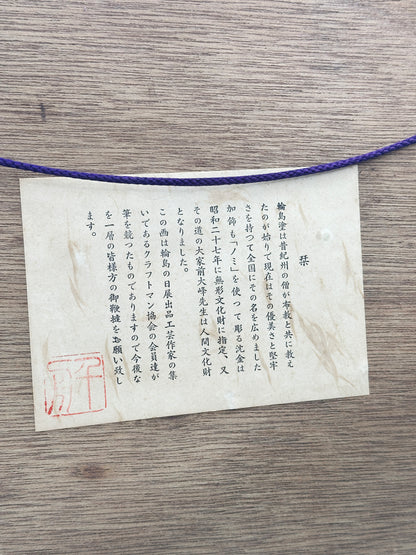 栞
輪島塗は昔紀州の僧が布教と共に教え
たのが始りで現在はその優美さと堅牢
さを持つて全国にその名を広めました
加飾も「ノミ」を使つて彫る沈金は
昭和二十七年に無形文化財に指定、又
その道の大家前大峰先生は人間文化財
となりました。
この画は輪島の日展出品工芸作家の集
いであるクラフトマン協会の会員達が
筆を競つたものでありますので今後な
を一層の皆様方の御鞭撻をお願い致し
ます。